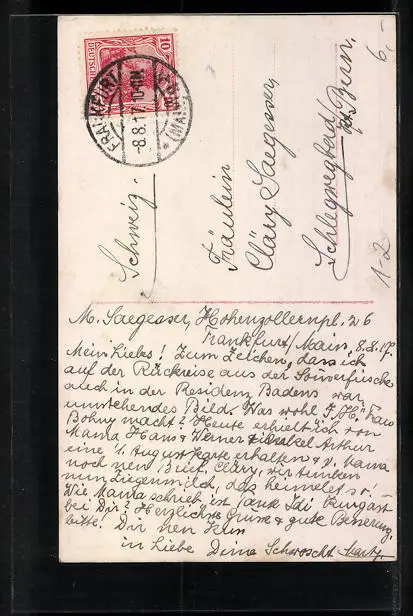 10
DEUTSCHES
FRANKFURT
-8.8.17.10-11N.
(MAIN)
6,-
Schweiz.
Fräulein
Cläry Saegesser,
Schlegwegbad
Bern.
1-2
M. Saegesser, Hohenzollernpl. 26
Frankfurt/Main, 8.8.17.
Mein Liebes! Zum Zeichen, dass ich
auf der Rückreise aus der Sommerfrische
auch in der Residenz Badens war
umstehendes Bild. Was wohl Frau
Bohny macht? Heute erhielt ich von
Mama Hans & Werner & Onkel Arthur
eine 1. August Karte erhalten & v. Mama
noch nen Brief. Cläry, wir
nun Ziegenmilch, das heimelet so!
Wie Mama schrieb ist Tante Idi Kurgast
bei Dir? Herzlichste Grüsse & gute Besserung,
bitte! Dir nen Kuss
in Liebe Deine Martz.